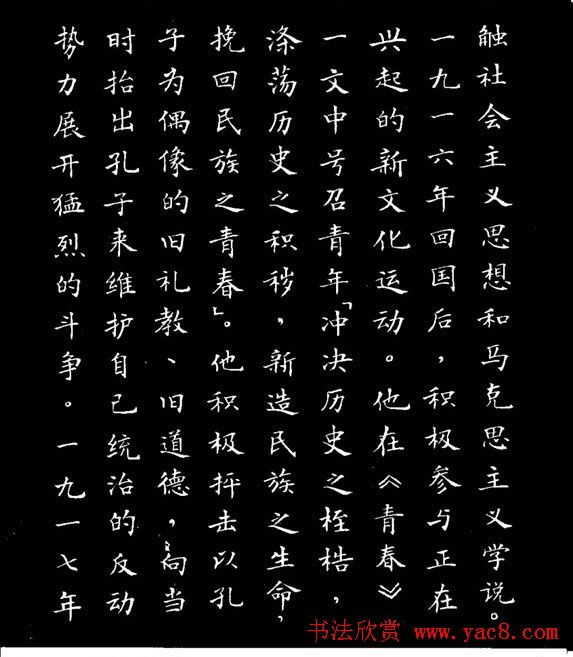 触社会主义思想和马克思主义学说。
一九一六年回国后，积极参与正在
兴起的新文化运动。他在《青春》
一文中号召青年「冲决历史之桎梏，
涤荡历史之积秽，新造民族之生命，
挽回民族之青春」。他积极抨击以孔
子为偶像的旧礼教、旧道德，向当
时抬出孔子来维护自己统治的反动
势力展开猛烈的斗争。一九一七年
书法欣赏 www.yac8.com